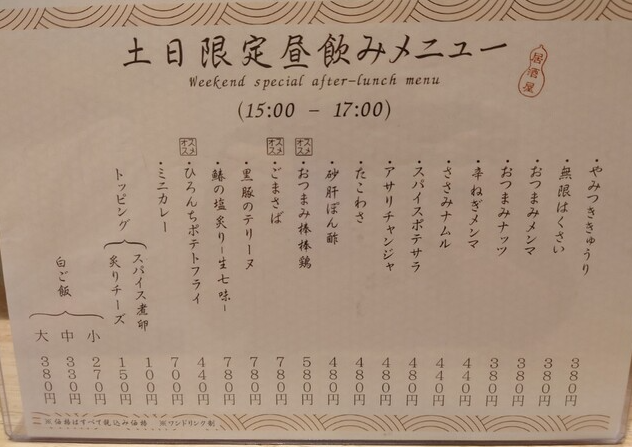 土日限定昼飲みメニュー
居酒屋
Weekend special after-lunch menu
(15:00 - 17:00)
・やみつききゅうり 380円
・無限はくさい 380円
・おつまみメンマ 380円
・おつまみナッツ 380円
・辛ねぎメンマ 440円
・ささみナムル 440円
・スパイスポテサラ 480円
・アサリチャンジャ 480円
・たこわさ 480円
・砂肝ぽん酢 480円
オススメ
・おつまみ棒棒鶏 580円
オススメ
・ごまさば 780円
・黒豚のテリーヌ 780円
・鰆の塩炙り-生七味- 780円
オススメ
・ひろんちポテトフライ 440円
・ミニカレー 700円
トッピング
スパイス煮卵 100円
炙りチーズ 150円
白ご飯
小 270円
中 330円
大 380円
※価格はすべて税込み価格 ※ワンドリンク制